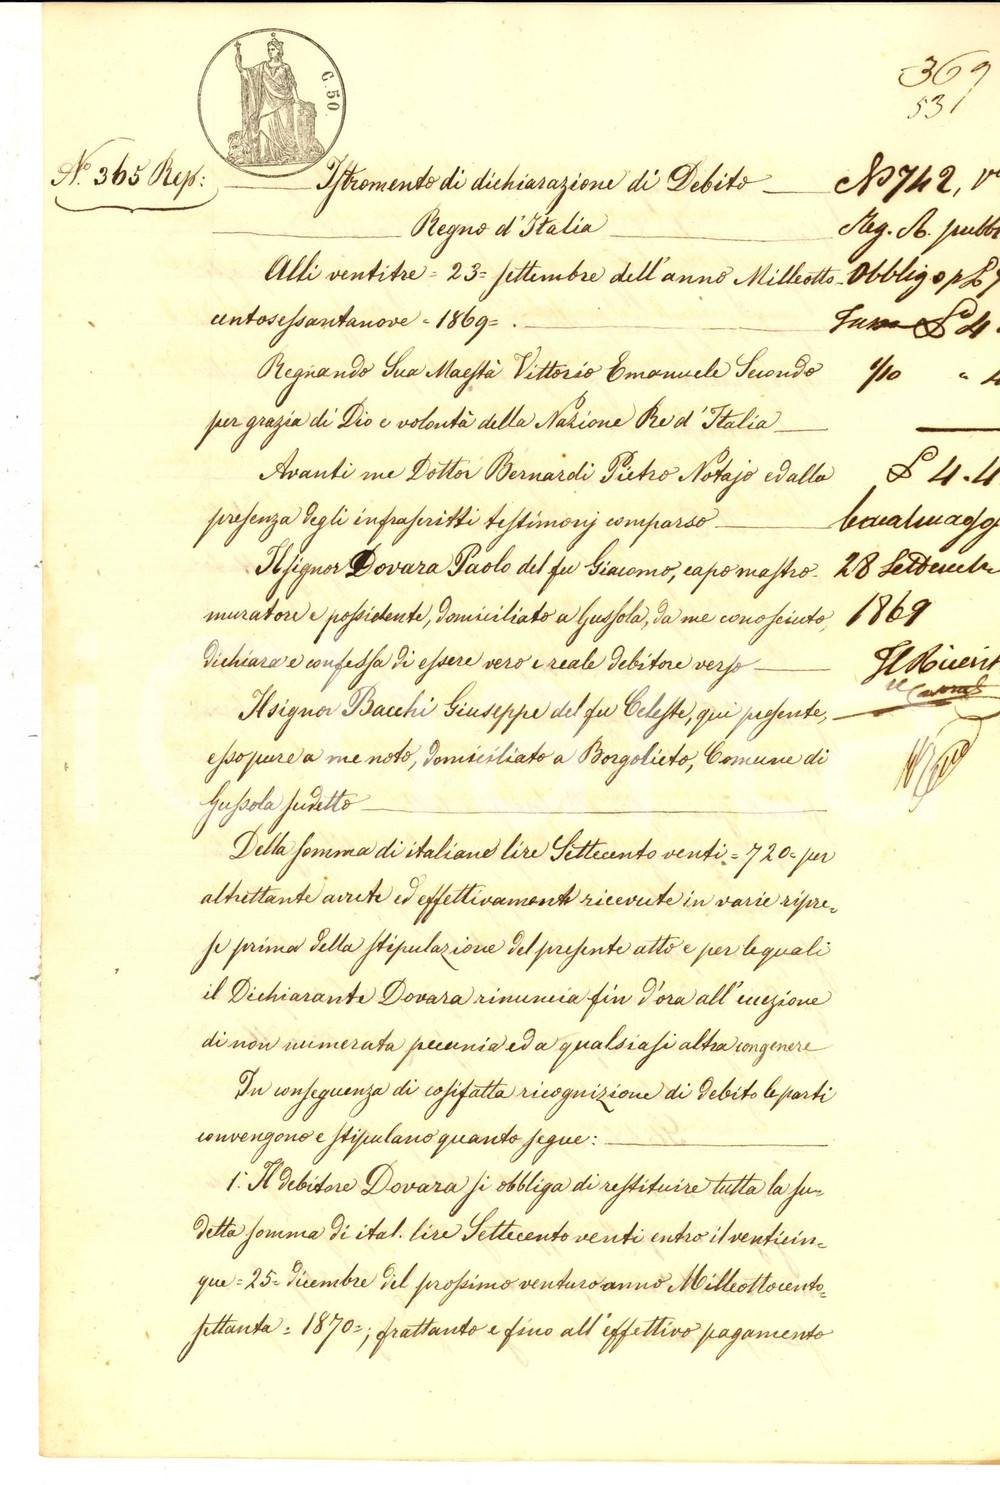 C. 50.
369
531
N.° 365 Rep:
Istromento di dichiarazione di Debito
Regno d'Italia
Alli ventitre = 23 = settembre dell'anno Milleotto-
centosessantanove = 1869 = .
Regnando Sua Maestà Vittorio Emanuele Secondo
per grazia di Dio e volontà della Nazione Re d'Italia
Avanti me Dottor Bernardi Pietro Notajo ed alla
presenza degli infrascritti testimonj comparso
Il signor Dovara Paolo del fu Giacomo, capo mastro
muratore e possidente, domiciliato a Gussola, da me conosciuto,
dichiara e confessa di essere vero e reale debitore verso
Il signor Bacchi Giuseppe del fu Celeste, qui presente,
esso pure a me noto, domiciliato a Borgolieto, Comune di
Gussola sudetto
Della somma di italiane lire Settecento venti = 720 = per
altrettante avute ed effettivamente ricevute in varie ripre=
se prima della stipulazione del presente atto e per le quali
il Dichiarante Dovara rinuncia fin d'ora all'eccezione
di non numerata pecunia ed a qualsiasi altra congenere
In conseguenza di cosifatta ricognizione di debito le parti
convengono e stipulano quanto segue:
1.° Il debitore Dovara si obbliga di restituire tutta la su=
detta somma di ital. lire Settecento venti entro il venticin=
que = 25 = dicembre del prossimo venturo anno Milleottocento=
settanta = 1870 = ; frattanto e fino all'effettivo pagamento
N° 742, V
Reg. A. pubb
Obbligo p £ 7
£ 4.
1/10 " 4
£ 4. 4
28 Settembre
1869
Il